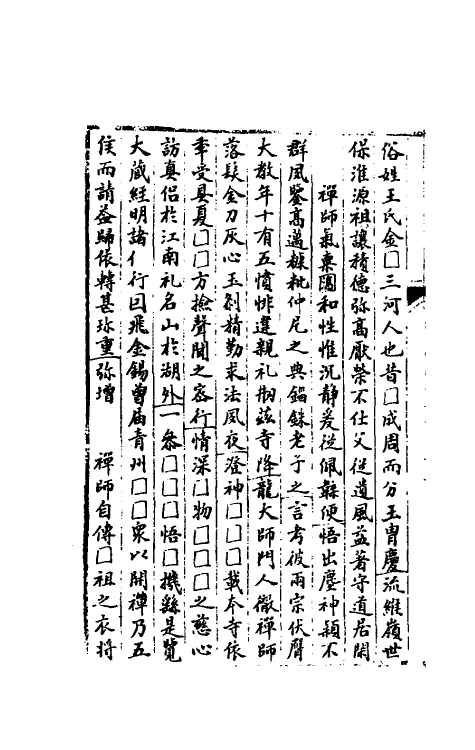 俗姓王氏金□三河人也昔□成周而分王胄慶流維嶺世
保淮源祖讓積德弥高厭榮不仕父從道風益著守道居閑
禪師氣稟圓和性惟沉静爰從佩韘便悟出塵神穎不
群風鑒高邁糠秕仲尼之典錙銖老子之言考彼兩宗伏膺
大教年十有五憤悱違親礼荊兹寺降龍大師門人徹禪師
落髮金刀灰心玉剎精勤求法風夜澄神□□□載本寺依
年受具夏□□方撿聲聞之密行情深□物□□□之慈心
訪真侣於江南礼名山於湖外一叅□□□□悟□機繇是覽
大藏經明諸仁行因飛金錫曾届青州□□衆以開禪乃五
侯而請益歸依轉甚珎重弥增　禪師自傳□祖之衣将